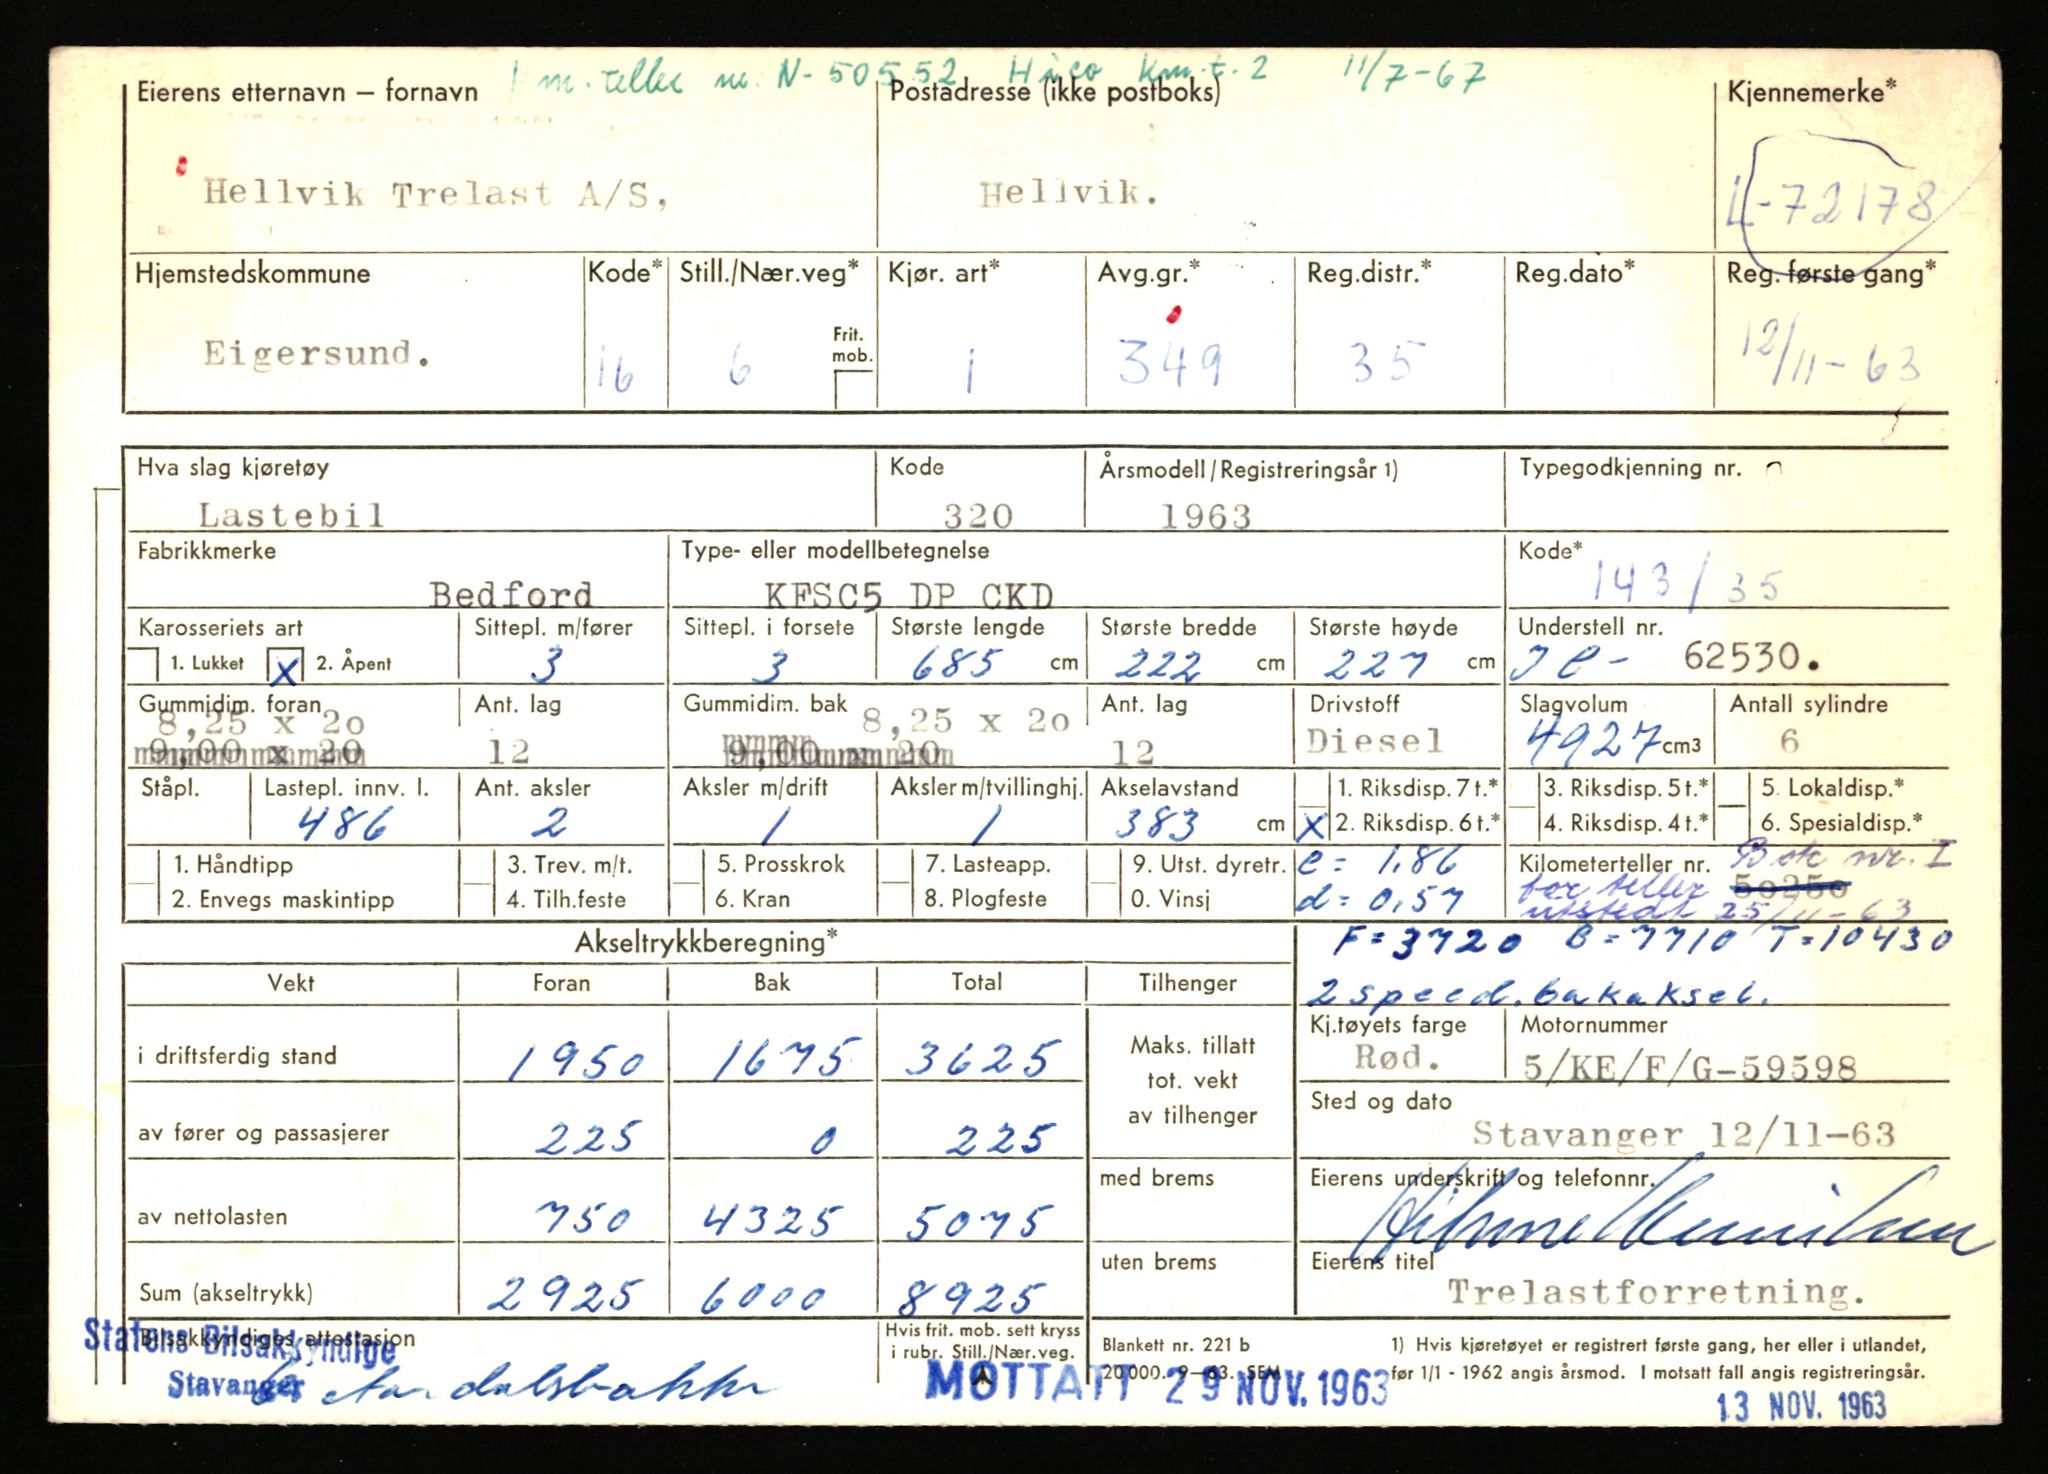 Km. teller nr. N-50552 Hico Km.t. 2 11/7-67
Eierens etternavn – fornavn Postadresse (ikke postboks) Kjennemerke*
Hellvik Trelast A/S, Hellvik. L-72178
Hjemstedskommune Kode* Still./Nær.veg* Kjør. art* Avg.gr.* Reg.distr.* Reg.dato* Reg. første gang*
Frit. mob.
Eigersund. 16 6 1 349 35 12/11-63
Hva slag kjøretøy Kode Årsmodell/Registreringsår 1) Typegodkjenning nr.
Lastebil 320 1963
Fabrikkmerke Type- eller modellbetegnelse Kode*
Bedford KFSC5 DP CKD 143/35
Karosseriets art Sittepl. m/fører Sittepl. i forsete Største lengde Største bredde Største høyde Understell nr.
1. Lukket X 2. Åpent 3 3 685 cm 222 cm 227 cm JC- 62530.
Gummidim. foran Ant. lag Gummidim. bak Ant. lag Drivstoff Slagvolum Antall sylindre
8,25 x 2o 8,25 x 2o
9,00 x 20 12 9,00 x 20 12 Diesel 4927 cm3 6
Ståpl. Lastepl. innv. l. Ant. aksler Aksler m/drift Aksler m/tvillinghj. Akselavstand 1. Riksdisp. 7 t.* 3. Riksdisp. 5 t.* 5. Lokaldisp.*
486 2 1 1 383 cm X 2. Riksdisp. 6 t.* 4. Riksdisp. 4 t.* 6. Spesialdisp.*
1. Håndtipp 3. Trev. m/t. 5. Prosskrok 7. Lasteapp. 9. Utst. dyretr. e = 1,86 Kilometerteller nr. Bok nr. I
2. Envegs maskintipp 4. Tilh.feste 6. Kran 8. Plogfeste 0. Vinsj d = 0,57 for teller 50250
utstedt 25/11-63
Akseltrykkberegning* F = 3720 B = 7710 T = 10430
Vekt Foran Bak Total Tilhenger 2 speed. bakaksel.
Kj.tøyets farge Motornummer
i driftsferdig stand 1950 1675 3625 Maks. tillatt tot. vekt av tilhenger Rød. 5/KE/F/G-59598
Sted og dato
av fører og passasjerer 225 0 225 Stavanger 12/11-63
med brems Eierens underskrift og telefonnr.
av nettolasten 750 4325 5075
uten brems Eierens titel
Sum (akseltrykk) 2925 6000 8925 Trelastforretning.
Bilsakkyndiges attestasjon Hvis frit. mob. sett kryss i rubr. Still./Nær.veg. Blankett nr. 221 b 1) Hvis kjøretøyet er registrert første gang, her eller i utlandet,
Statens Bilsakkyndige
20.000. 9–63. SEM før 1/1 - 1962 angis årsmod. I motsatt fall angis registreringsår.
Stavanger MOTTATT 29 NOV. 1963
13 NOV. 1963